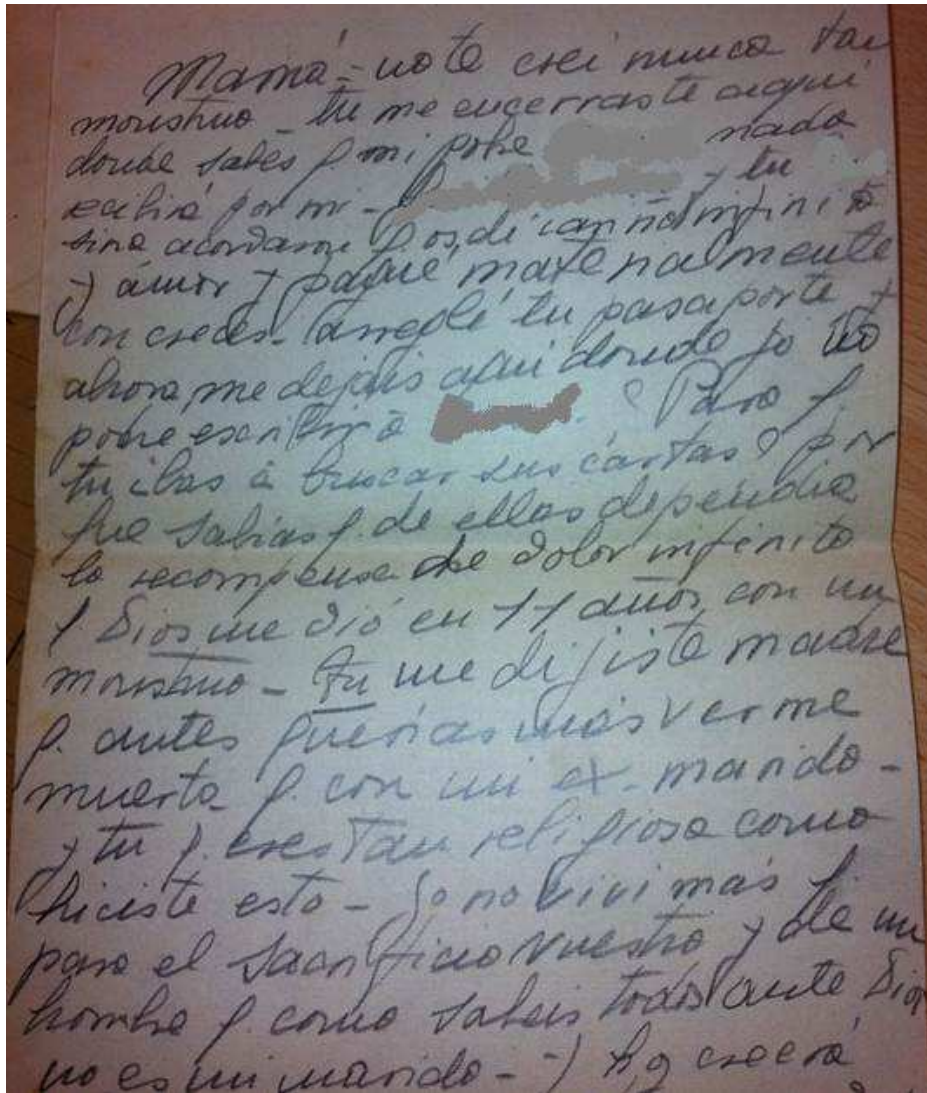 Mamá - no te creí nunca tan
monstruo - tu me encerraste aquí
donde sabes q. mi pobre nada
recibirá por mi - y tu
sino acordarse q. os dí cariño infinito
y ámor y pagué maternalmente
con creces. arreglé tu pasaporte y
ahora me dejais aquí donde yo no
podré escribir a . ¿Para q.
tu ibas a buscar sus cartas? por
que sabias q. de ellas dependia
la recompensa de dolor infinito
q. Dios me dió en 11 años con un
monstruo - tu me dijiste madre
q. antes querias más verme
muerta q. con mi ex-marido -
y tu q. eres tan religiosa como
hiciste esto - yo no viví más q.
para el sacrificio vuestro y de un
hombre q. como sabeis todos ante Dios
no es mi marido - y creerá